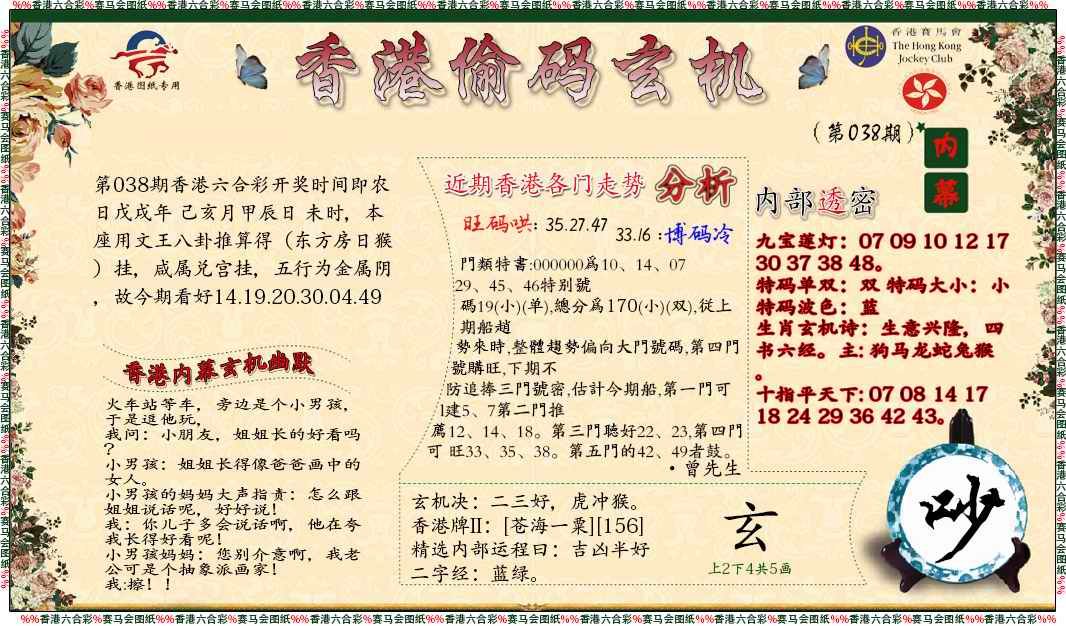 %%香港六合彩%赛马会图纸%%香港六合彩%赛马会图纸%%香港六合彩%赛马会图纸%%香港六合彩%赛马会图纸%%香港六合彩%赛马会图纸%%香港六合彩%赛马会图纸%%香港六合彩%%
香港图纸专用
香港偷码玄机
香港賽馬會
The Hong Kong
Jockey Club
(第038期)
内幕
第038期香港六合彩开奖时间即农
日戊戌年 己亥月甲辰日 未时，本
座用文王八卦推算得（东方房日猴
）挂，咸属兑宫挂，五行为金属阴
，故今期看好14.19.20.30.04.49
香港内幕玄机幽默
火车站等车，旁边是个小男孩，
于是逗他玩，
我问：小朋友，姐姐长的好看吗
？
小男孩：姐姐长得像爸爸画中的
女人。
小男孩的妈妈大声指责：怎么跟
姐姐说话呢，好好说！
我：你儿子多会说话啊，他在夸
我长得好看呢！
小男孩妈妈：您别介意啊，我老
公可是个抽象派画家！
我:擦！！
近期香港各门走势 分析
旺码哄: 35.27.47
33.16 :博码冷
門類特書:000000爲10、14、07
29、45、46特别號
碼19(小)(单),總分爲170(小)(双),従上
期船趙
勢來時,整體趨勢偏向大門號碼,第四門
號購旺,下期不
防追捧三門號密,估計今期船,第一門可
1建5、7第二門推
薦12、14、18。第三門聴好22、23,第四門
可 旺33、35、38。第五門的42、49者鼓。
·曾先生
内部透密
九宝莲灯：07 09 10 12 17
30 37 38 48。
特码单双：双 特码大小：小
特码波色：蓝
生肖玄机诗：生意兴隆，四
书六经。主: 狗马龙蛇兔猴
。
十指平天下: 07 08 14 17
18 24 29 36 42 43。
玄机决：二三好，虎冲猴。
香港牌II：[苍海一粟][156]
精选内部运程日：吉凶半好
二字经：蓝绿。
玄
上2下4共5画
吵
%%香港六合彩%赛马会图纸%%香港六合彩%赛马会图纸%%香港六合彩%赛马会图纸%%香港六合彩%赛马会图纸%%香港六合彩%赛马会图纸%%香港六合彩%赛马会图纸%%香港六合彩%%